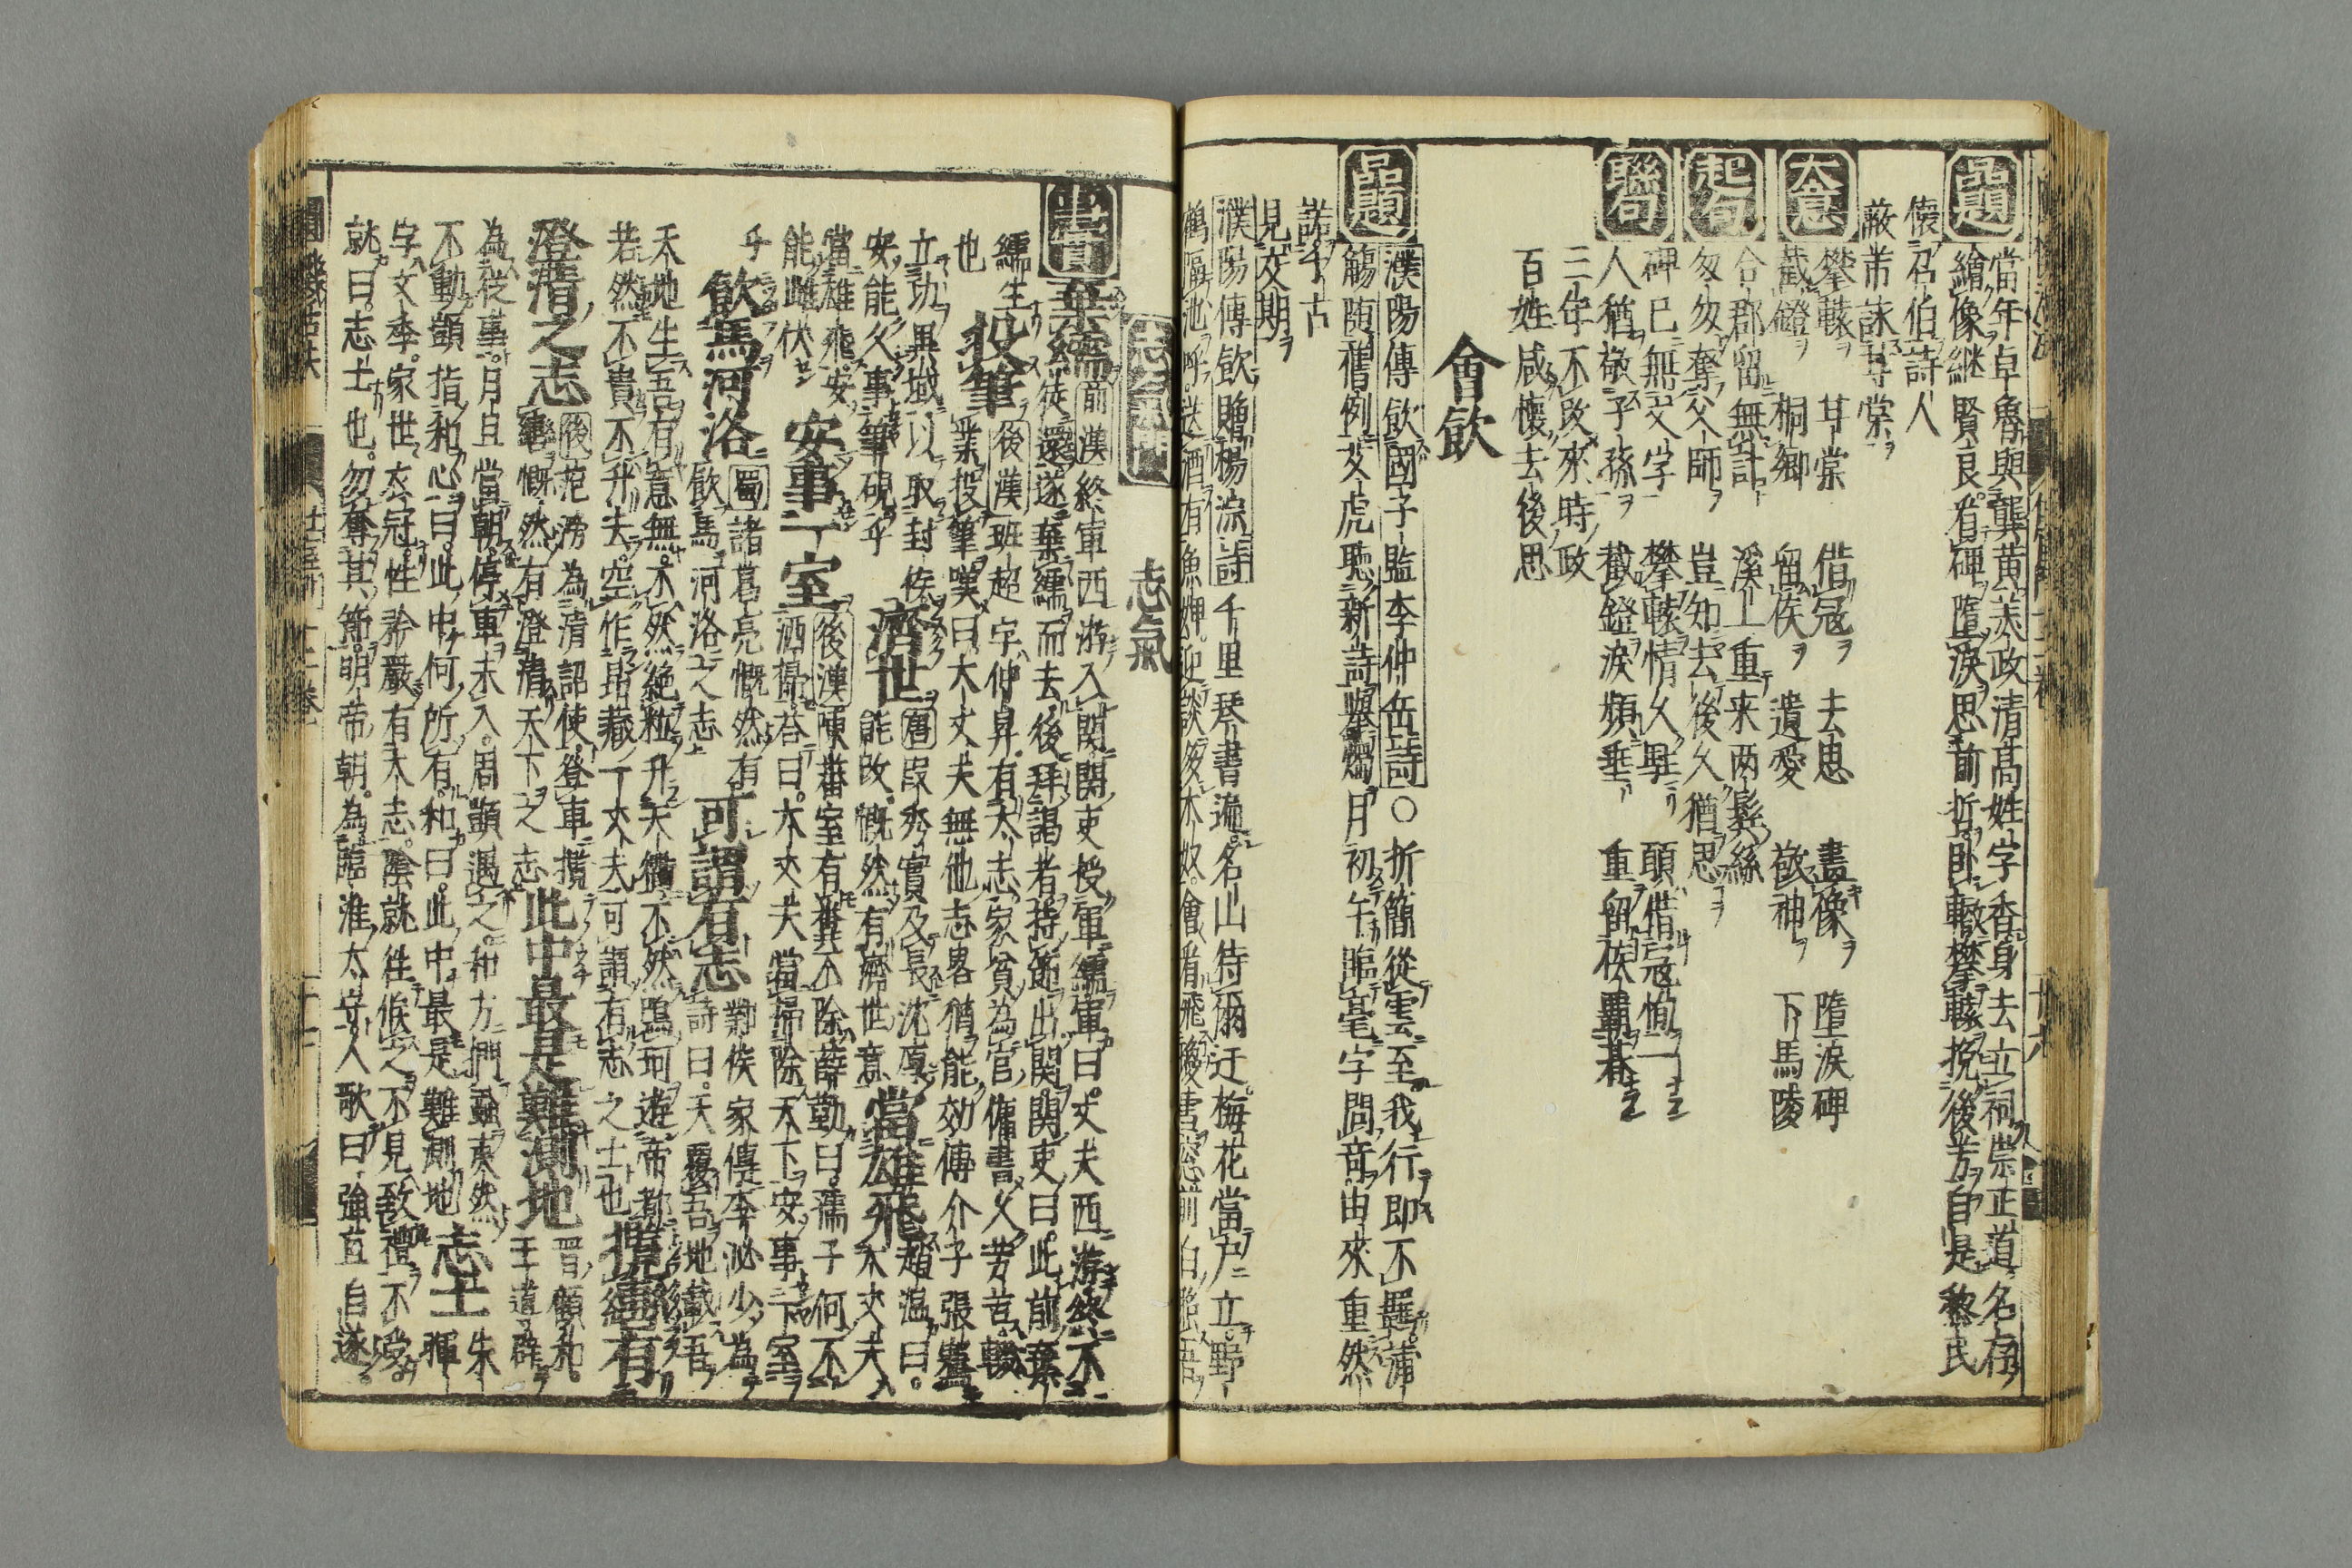 品題
當年卓魯與龔黄羙政清髙姓字香身去立祠崇正道名存
繪像継賢良看碑墮淚思前哲臥轍攀轅挽後芳自是黎民
懐召伯詩人
蔽芾詠甘棠
大意
攀轅 甘棠 借冦 去思 畫像 墮淚碑
截鐙 桐郷 留侯 遺愛 敬神 下馬陵
起句
合郡留無計 溪上重来两鬂絲
匆匆奪父師 豈知去後久猶思
聯句
碑已無文字 攀轅情久駐 願借冦恂一
人猶敬子孫 截鐙淚頻垂 重留侯覇朞
三年不改來時政
百姓咸懐去後思
會飲
品題
濮陽傳飲國子監李仲缶詩〇折簡從雲至我行即不羈蒲
觴随舊例艾虎聴新詩擧燭月初午臨毫字問竒由來重然
諾千古
見交期
濮陽傳飲贈楊淙詩 千里琴書遍名山待爾迂梅花當户立野
鶴隔池呼送酒有魚婢迎談多木奴會看飛硯雪窓前白
志氣
志氣
書言
棄繻 前漢終軍西游入関関吏授軍繻軍曰丈夫西游終不
徒還遂棄繻而去後拜謁者持節出関関吏曰此前棄
繻生
也
投筆 後漢班超字仲昇有大志家貧為官傭書久劳苦輟
業投筆嘆曰大丈夫無他志畧猶能効傅介子張騫
立功異域以取封侯
安能久事筆硯乎
濟世 唐叚秀實及長沈厚
能改慨然有濟世意
當雄飛 趙温曰
大丈夫
當雄飛安
能雌伏
安事一室 後漢陳蕃室有糞不除薛勤曰孺子何不
洒掃荅曰大丈夫當掃除天下安事一室
乎
飲馬河洛 蜀諸葛亮慨然有
飲馬河洛之志
可謂有志 鄴侯家傳李泌少為
詩曰天覆吾地載吾
天地生吾有意無不然絶粒升天衢不然鳴珂遊帝都
若然不貴不升去空作昻藏一丈夫可謂有志之士也
攬轡有
澄清之志 後范滂為清詔使登車攬
轡慨然有澄清天下之志
此中最是難測地 晋顧和
王導辟
為從事月旦當朝停車未入周顗遇之和方捫蝨夷然
不動顗指和心曰此中何所有和曰此中最是難測地
志士 朱
暉
字文季家世衣冠性矜嚴有大志陰就往候之不見致禮不受
就曰志士也勿奪其節明帝朝為臨淮太守人歌曰強直自遂